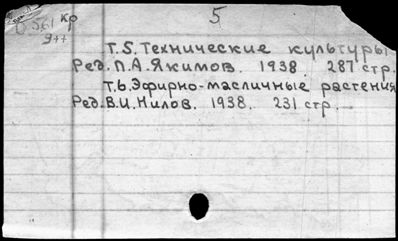 5
0.561 кр
9++
Т.5. Технические культуры
Ред. П.А. Якимов. 1938. 287 стр.
Т.6. Эфирно-масличные растения
Ред. В.И. Нилов. 1938. 231 стр.